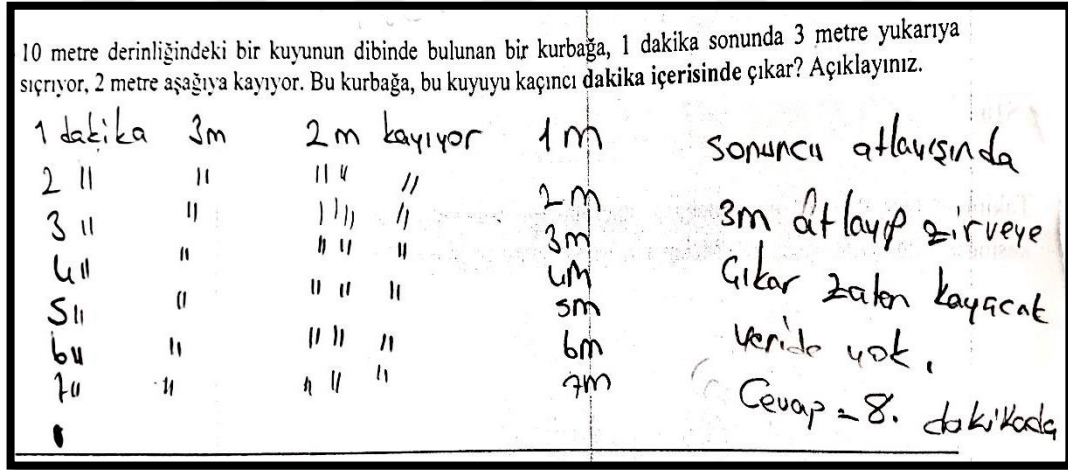 10 metre derinliğindeki bir kuyunun dibinde bulunan bir kurbağa, 1 dakika sonunda 3 metre yukarıya
sıçrıyor, 2 metre aşağıya kayıyor. Bu kurbağa, bu kuyuyu kaçıncı dakika içerisinde çıkar? Açıklayınız.
1 dakika 3m 2m kayıyor 1m
2 " " " " " 2m
3 " " " " " 3m
4 " " " " " 4m
5 " " " " " 5m
6 " " " " " 6m
7 " " " " " 7m
sonuncu atlayışında
3m atlayıp zirveye
Çıkar zaten kayacak
yeride yok.
Cevap = 8. dakikada